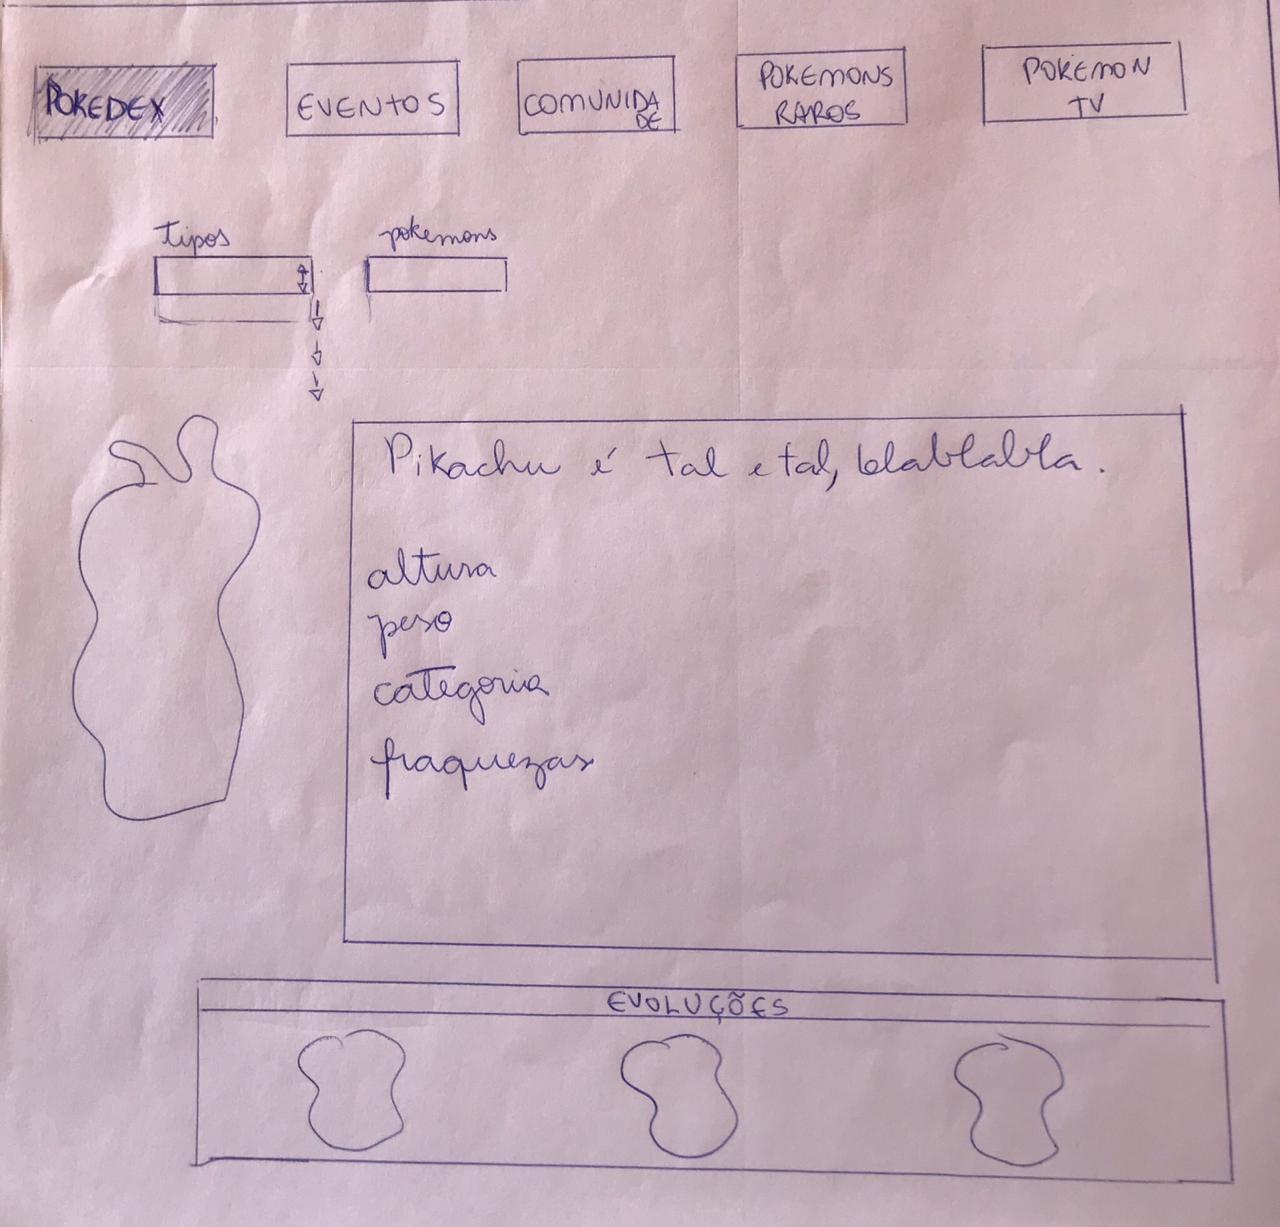 POKEDEX
EVENTOS
COMUNIDA
DE
POKEMONS
RAROS
POKEMON
TV
tipos
pokemons
Pikachu é tal e tal, blablabla.
altura
peso
categoria
fraquezas
EVOLUÇÕES